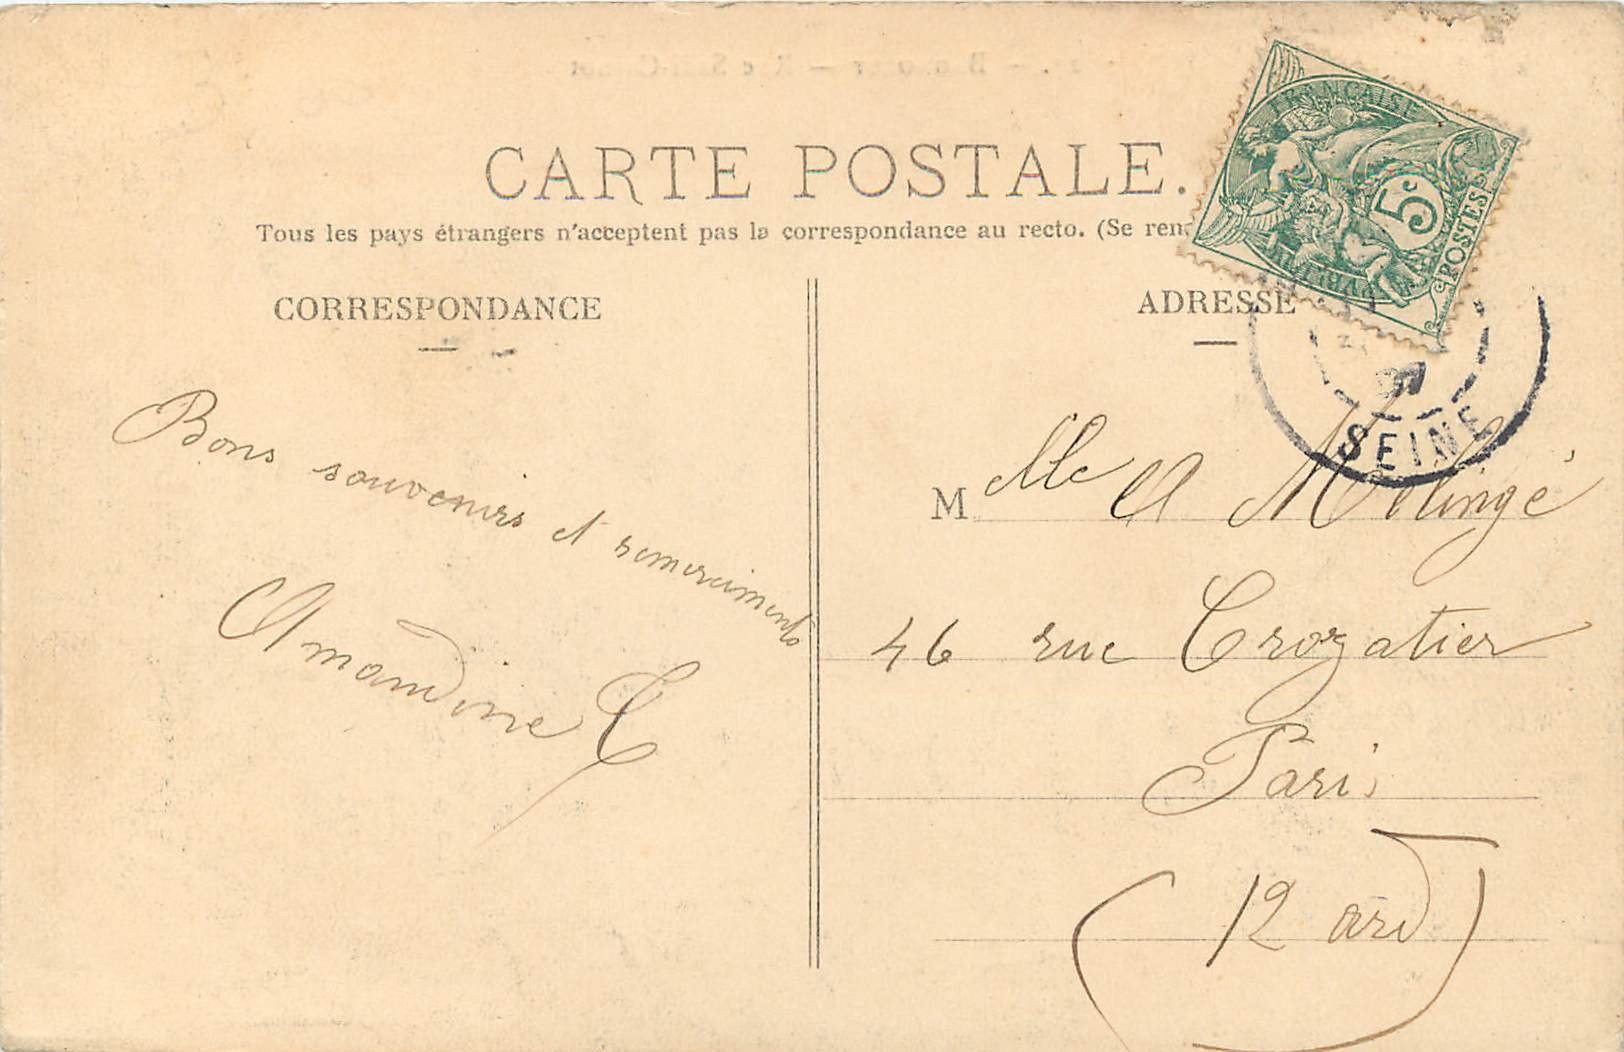 CARTE POSTALE.
Tous les pays étrangers n'acceptent pas la correspondance au recto. (Se ren
CORRESPONDANCE
Bons souvenirs et remerciments
Amandine C
FRANÇAISE
5c
POSTES
ADRESSE
07
SEINE
M elle A Molingé
46 rue Crozatier
Paris
(12 ard)